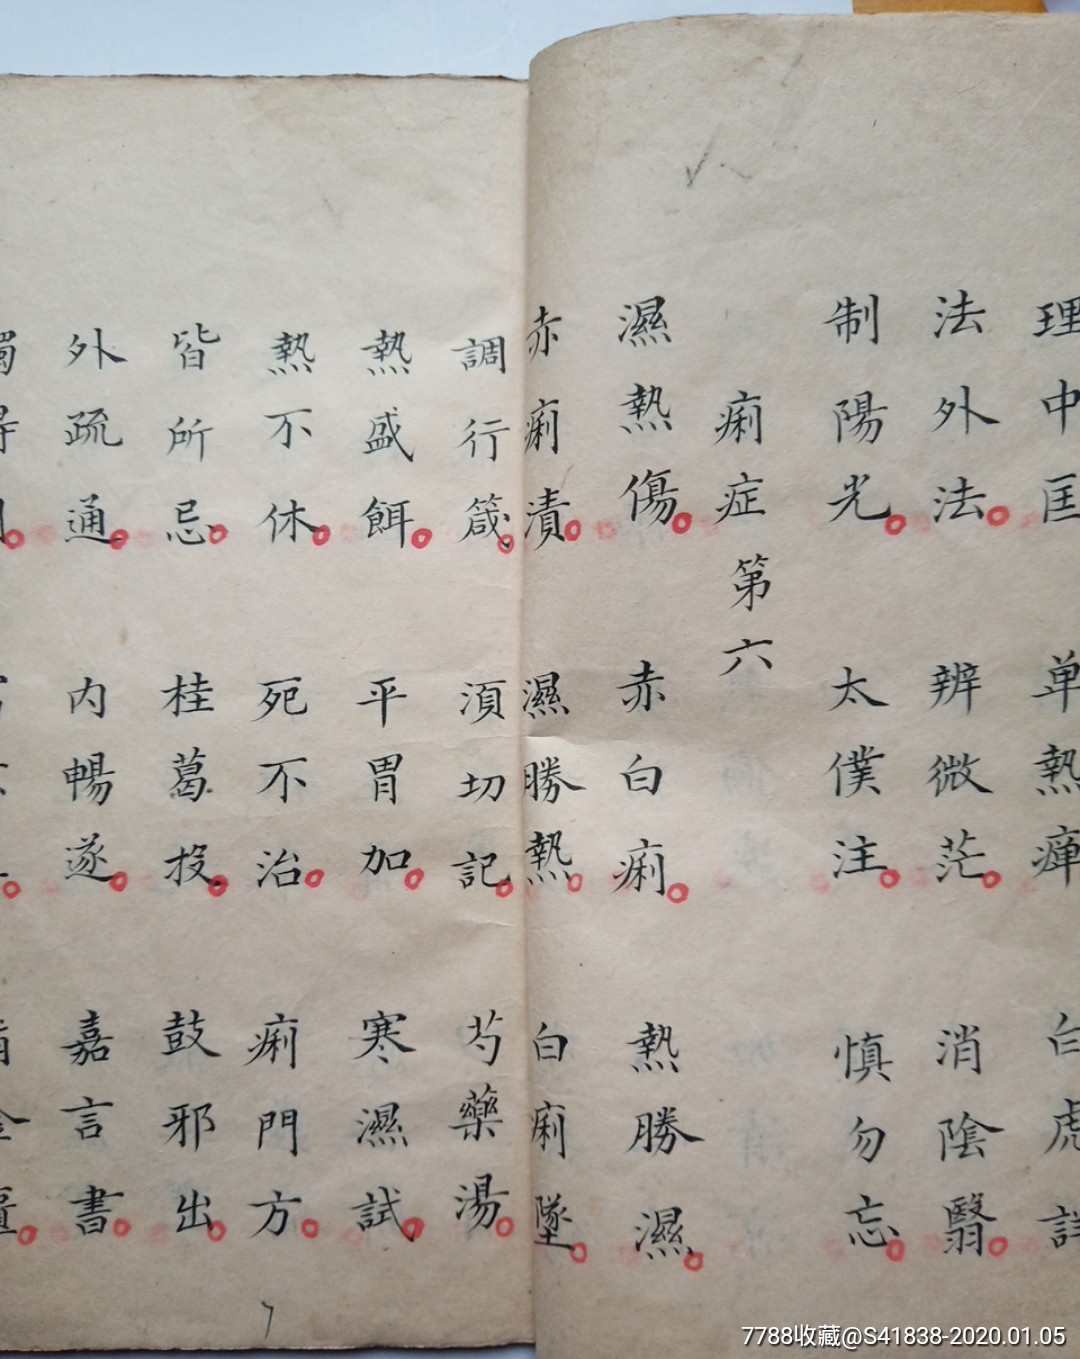 理中匡 单熱瘅 白虎詳
法外法 辨微茫 消陰翳
制陽光 太僕注 慎勿忘
痢症第六
濕熱傷 赤白痢 熱勝濕
赤痢漬 濕勝熱 白痢墜
調行箴 須切記 芍藥湯
熱盛餌 平胃加 寒濕試
熱不休 死不治 痢門方
皆所忌 桂葛投 鼓邪出
外疏通 内暢遂 嘉言書
7788收藏@S41838-2020.01.05